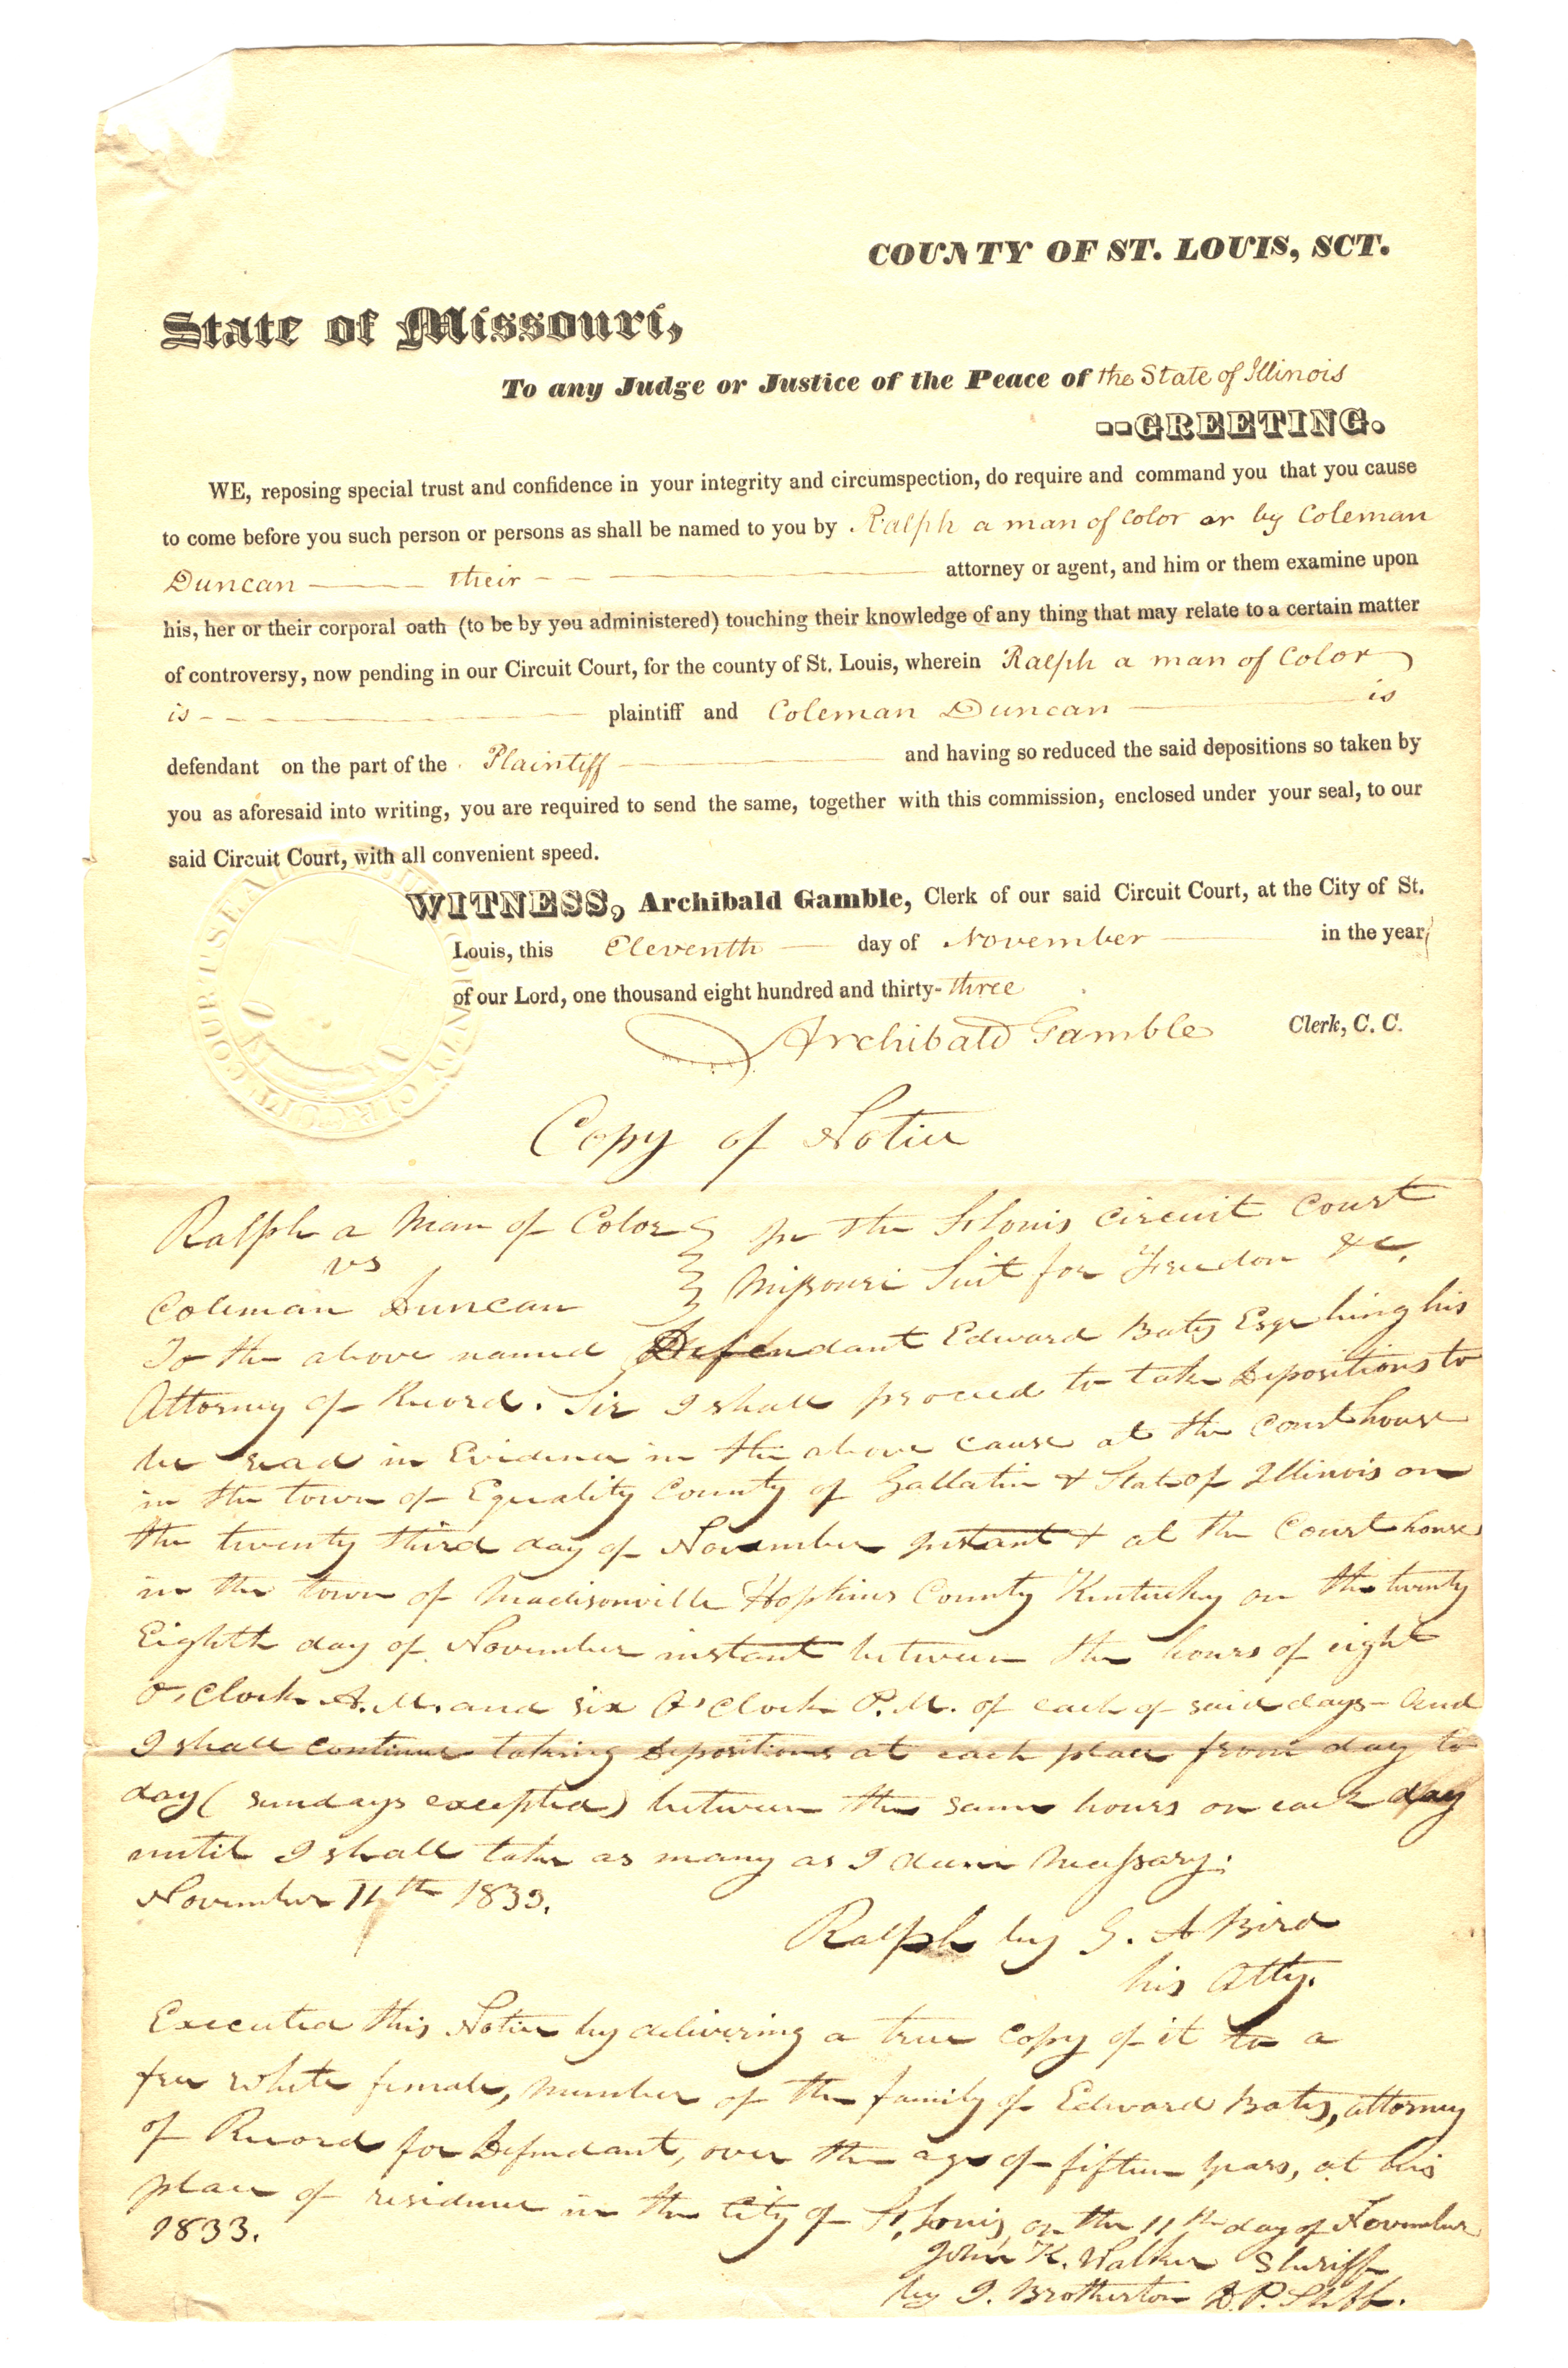 COUNTY OF ST. LOUIS, SCT.
State of Missouri,
To any Judge or Justice of the Peace of the State of Illinois
--GREETING.
WE, reposing special trust and confidence in your integrity and circumspection, do require and command you that you cause
to come before you such person or persons as shall be named to you by Ralph a man of Color or by Coleman
Duncan their attorney or agent, and him or them examine upon
his, her or their corporal oath (to be by you administered) touching their knowledge of any thing that may relate to a certain matter
of controversy, now pending in our Circuit Court, for the county of St. Louis, wherein Ralph a man of Color
is plaintiff and Coleman Duncan is
defendant on the part of the Plaintiff and having so reduced the said depositions so taken by
you as aforesaid into writing, you are required to send the same, together with this commission, enclosed under your seal, to our
said Circuit Court, with all convenient speed.
WITNESS, Archibald Gamble, Clerk of our said Circuit Court, at the City of St.
Louis, this Eleventh day of November in the year
of our Lord, one thousand eight hundred and thirty-three
Archibald Gamble Clerk, C. C.
Copy of Notice
Ralph a Man of Color } In the St Louis Circuit Court
vs
Coleman Duncan } Missouri Suit for Freedom &c.
To the above named Defendant Edward Bates Esqr being his
Attorney of Record. Sir I shall proceed to take Depositions to
be read in Evidence in the above cause at the Court house
in the town of Equality County of Gallatin & State of Illinois on
the twenty third day of November instant & at the Court house
in the town of Madisonville Hopkins County Kentucky on the twenty
Eighth day of November instant between the hours of eight
O'Clock A.M. and six O'Clock P.M. of each of said days - And
I shall continue taking Depositions at each place from day to
day (sundays excepted) between the same hours on each day
until I shall take as many as I deem Necessary.
November 11th 1833.
Ralph by G. A Bird
his Atty.
Executed this Notice by delivering a true Copy of it to a
free white female, member of the family of Edward Bates, attorney
of Record for Defendant, over the age of fifteen years, at his
place of residence in the City of St. Louis, on the 11th day of November
1833.
John K. Walker Sheriff
by J. Brotherton D.P. Shff.